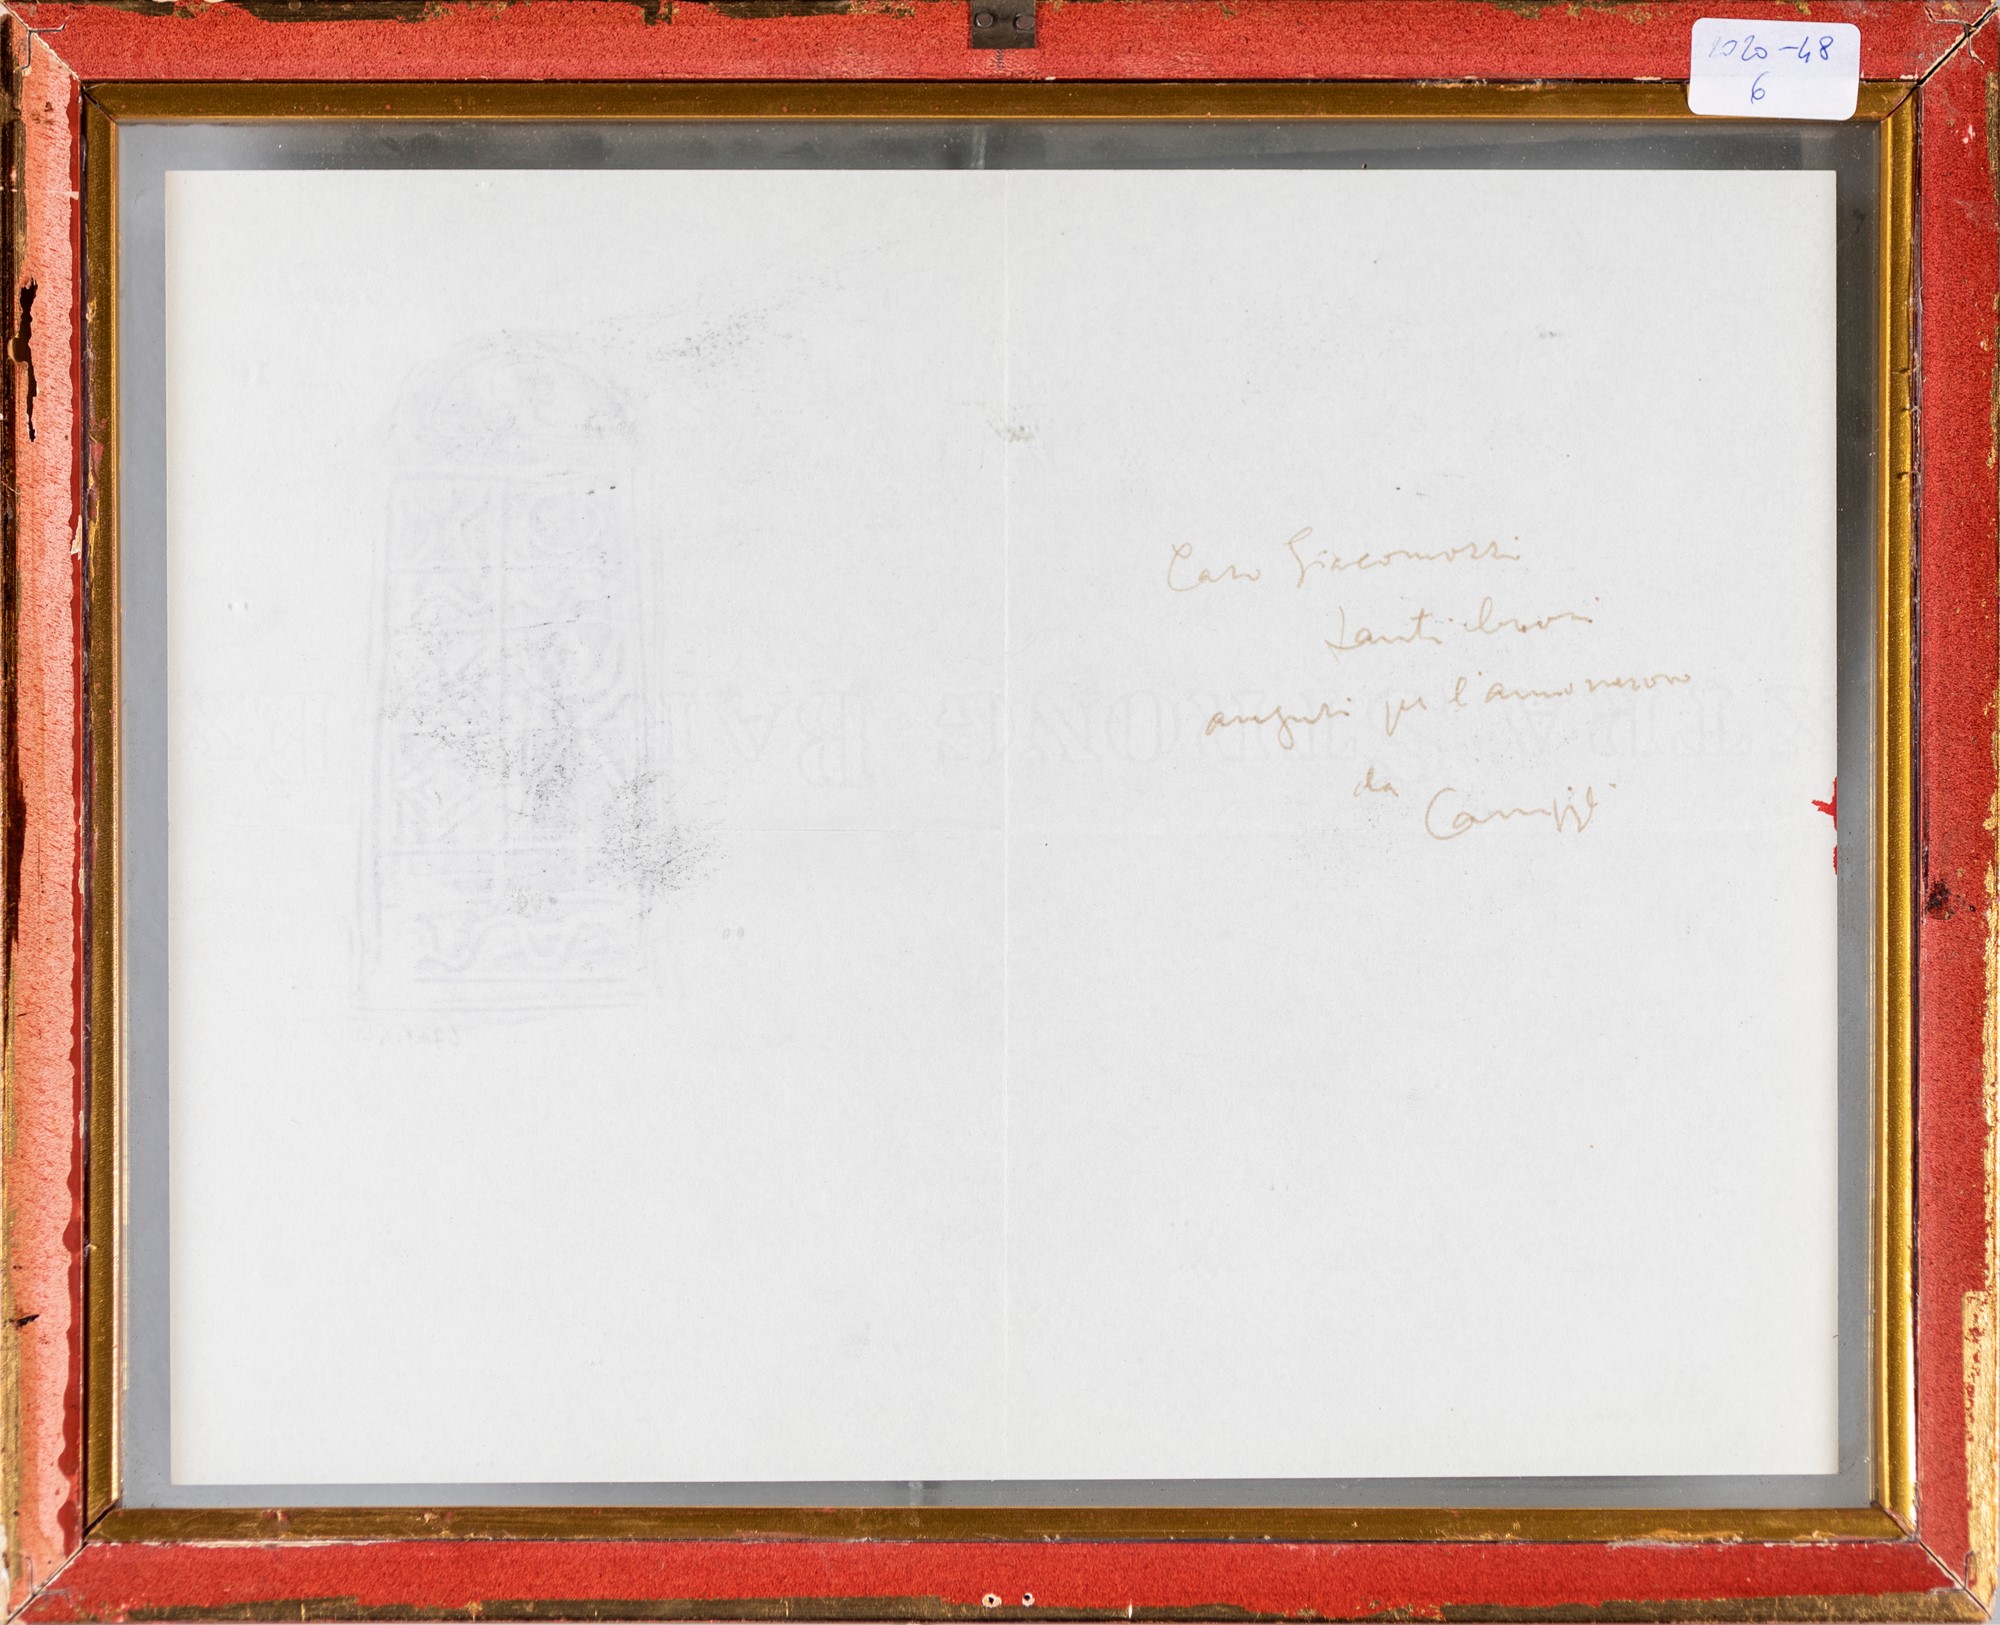 2020-48
6
Caro Giacomozzi
tanti
auguri per l'anno nuovo
da